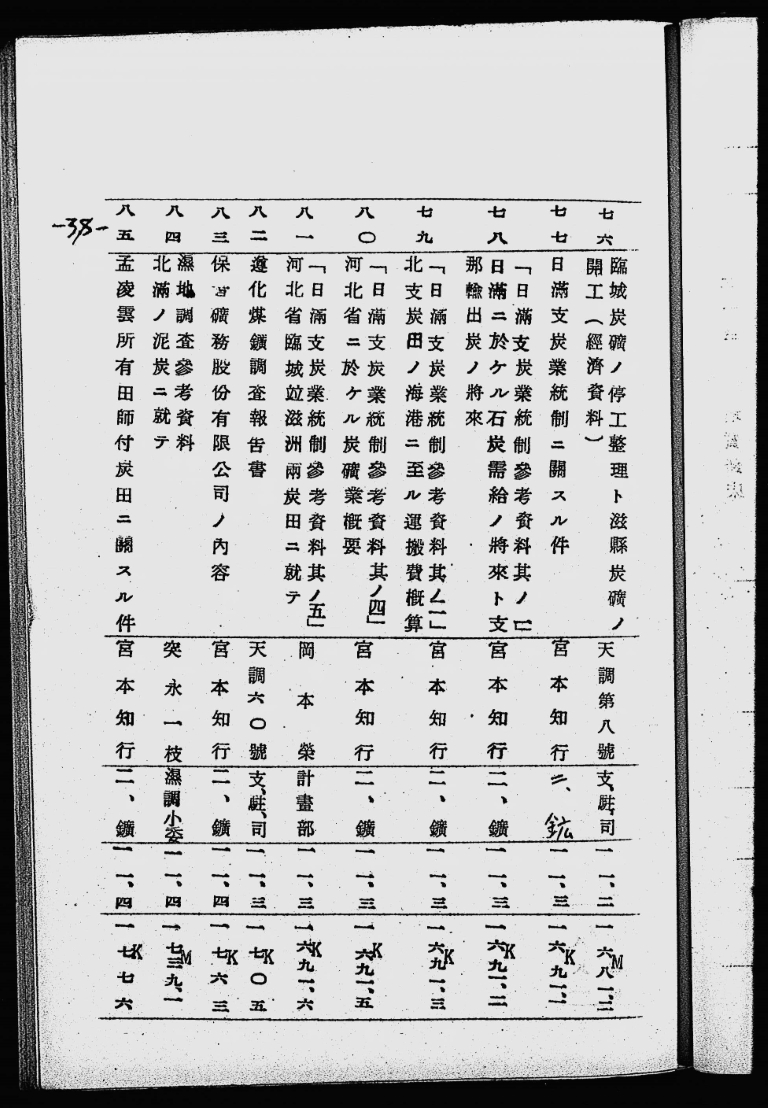 七六
臨城炭礦ノ停工整理ト滋縣炭礦ノ
開工(經濟資料)
天調第八號
支、駐、司
一一、二
一六八一、二
M
七七
日滿支炭業統制ニ關スル件
宮本知行
二、鉱
一一、三
一六九一、一
K
七八
「日滿支炭業統制參考資料其ノ一」
日滿ニ於ケル石炭需給ノ將來ト支
那輸出炭ノ將來
宮本知行
二、鑛
一一、三
一六九一、二
K
七九
「日滿支炭業統制參考資料其ノ二」
北支炭田ノ海港ニ至ル運搬費槪算
宮本知行
二、鑛
一一、三
一六九一、三
K
八〇
「日滿支炭業統制參考資料其ノ四」
河北省ニ於ケル炭礦業槪要
宮本知行
二、鑛
一一、三
一六九一、五
K
八一
「日滿支炭業統制參考資料其ノ五」
河北省臨城竝滋洲兩炭田ニ就テ
岡本榮
計畫部
一一、三
一六九一、六
K
八二
遵化煤鑛調查報告書
天調六〇號
支、駐、司
一一、三
一七〇五
K
八三
保晉礦務股份有限公司ノ內容
宮本知行
二、鑛
一一、四
一七六三
K
八四
濕地調查參考資料
北滿ノ泥炭ニ就テ
突永一枝
濕調小委
一一、四
一七三九、一
M
八五
孟凌雲所有田師付炭田ニ關スル件
宮本知行
二、鑛
一一、四
一七七六
K
-38-